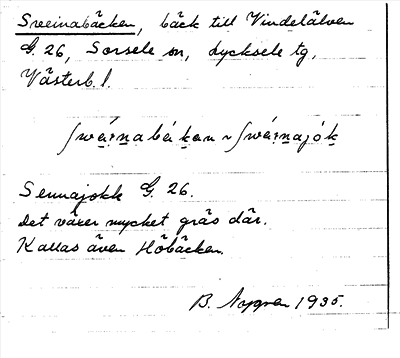 Sveinabäcken, bäck till Vindelälven
G. 26, Sorsele sn, Lycksele tg,
Västerb. l.
Sennajokk G. 26.
Det växer mycket gräs där.
Kallas även Höbäcken.
B. Nygren 1935.